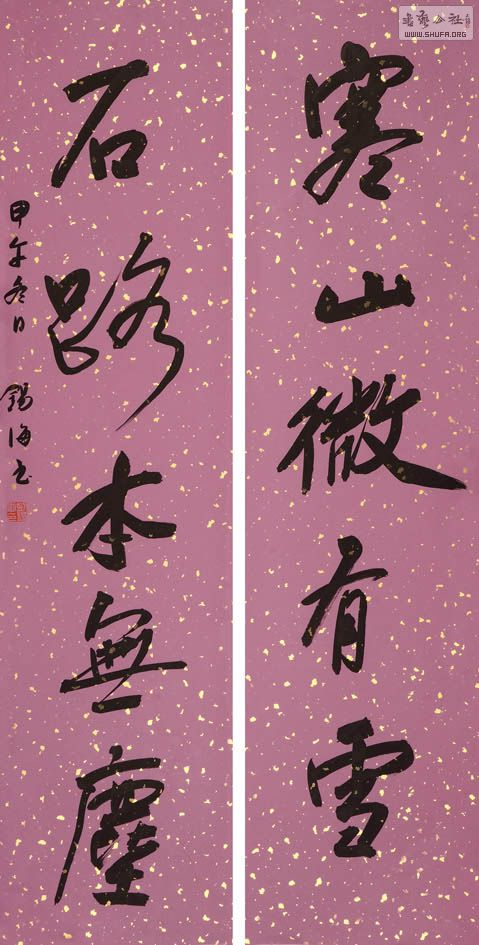 寒山微有雪
石路本無塵
甲午冬日 锡海书
书艺公社
WWW.SHUFA.ORG